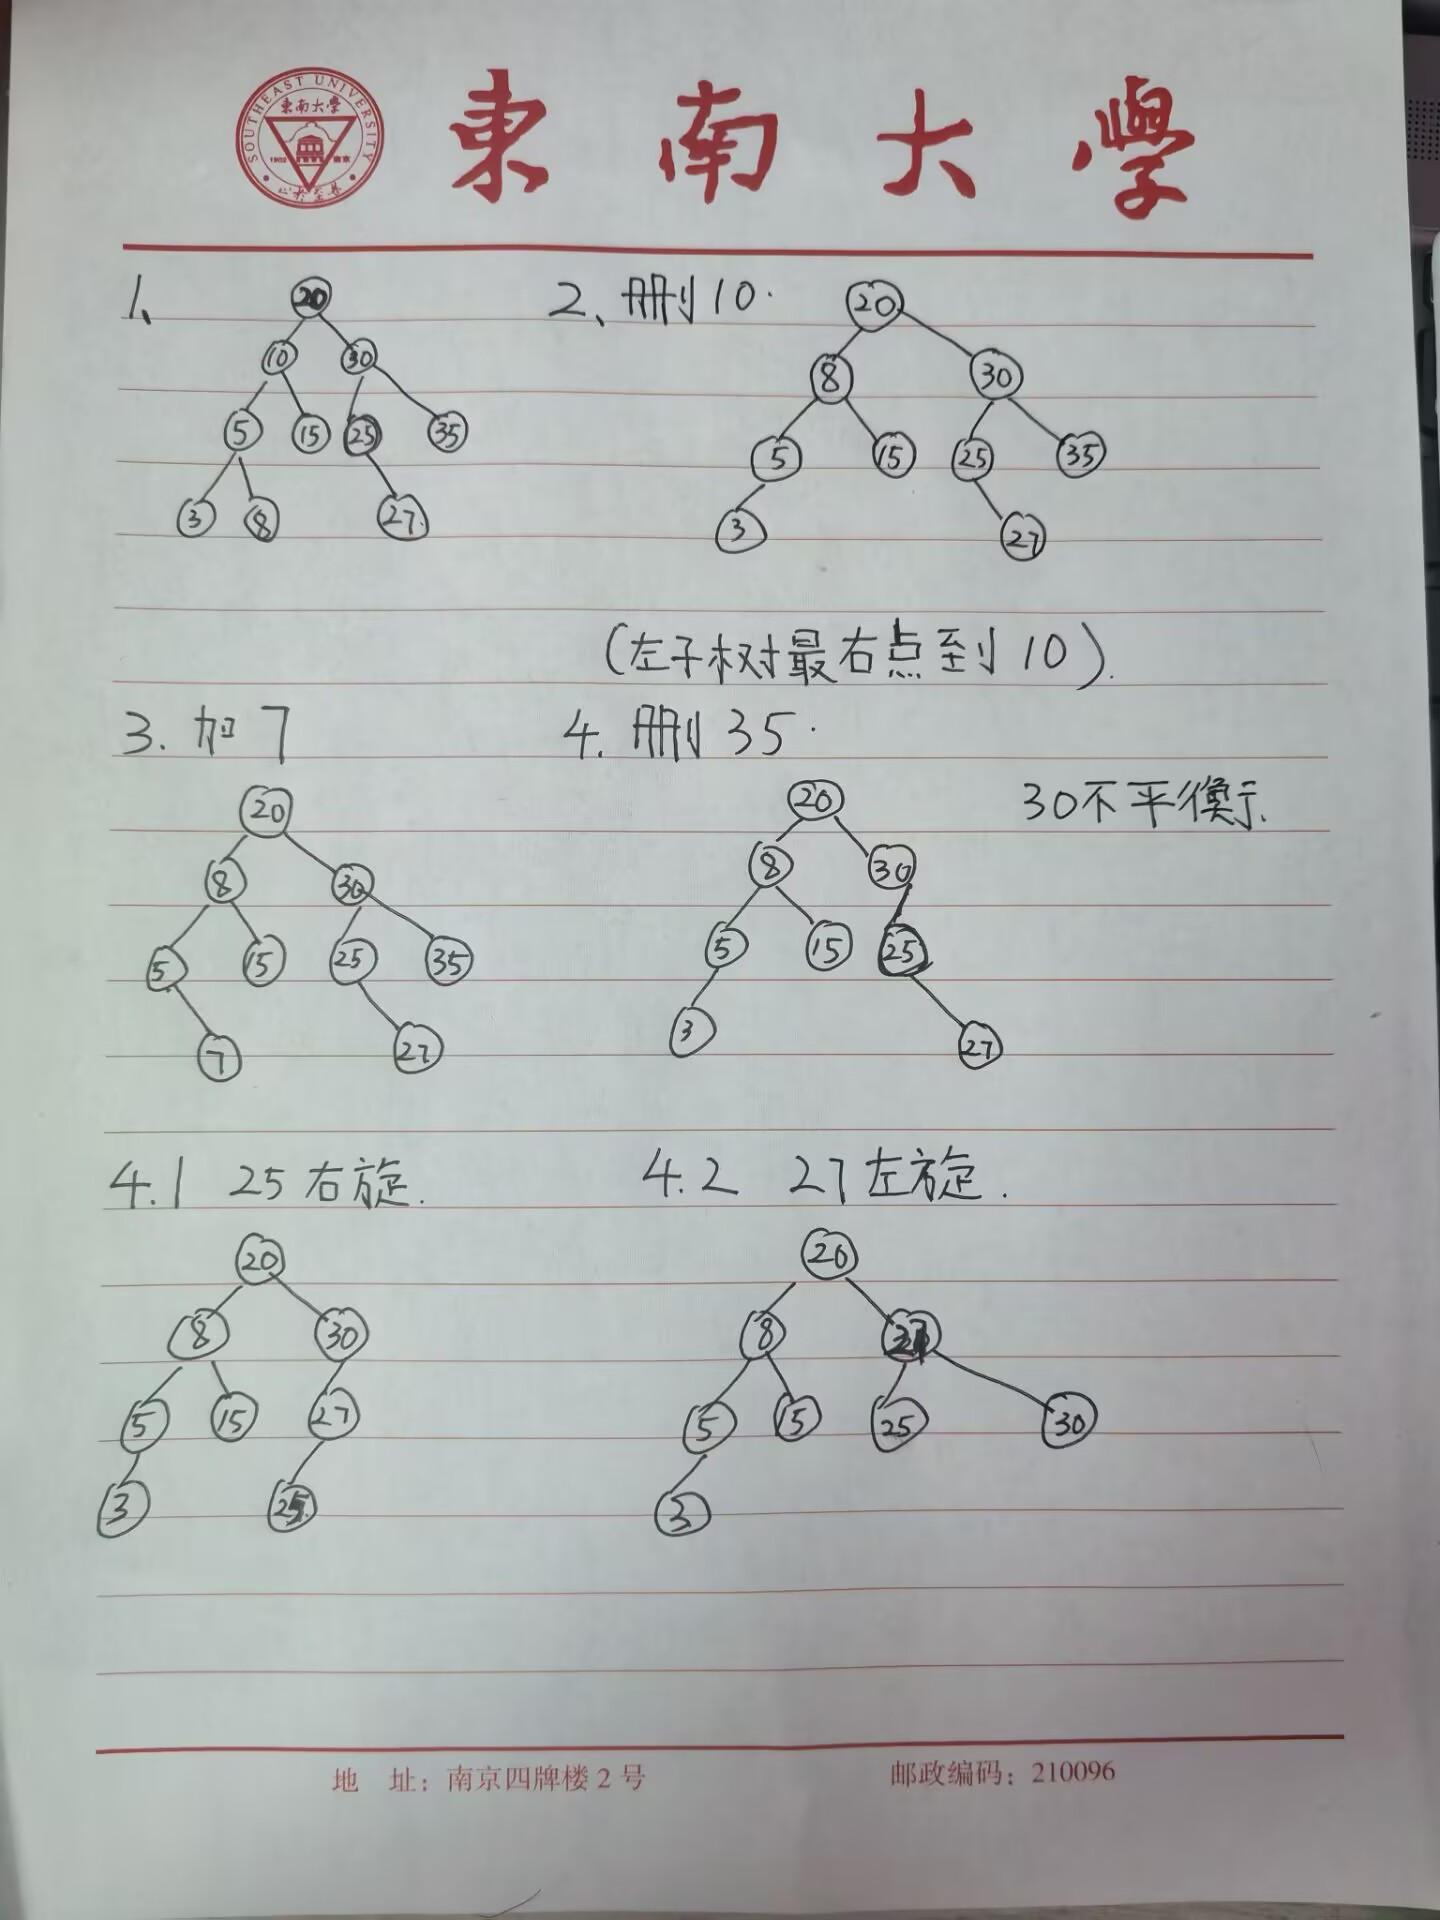 SOUTHEAST UNIVERSITY
東南大學
1902 南京
東南大學
1、
20
10 30
5 15 25 35
3 8 27
2、删10.
20
8 30
5 15 25 35
3 27
(左子树最右点到10).
3. 加7
20
8 30
5 15 25 35
7 27
4. 删35.
30不平衡.
20
8 30
5 15 25
3 27
4.1 25右旋.
20
8 30
5 15 27
3 25
4.2 27左旋.
20
8 27
5 15 25 30
3
地 址：南京四牌楼2号 邮政编码：210096